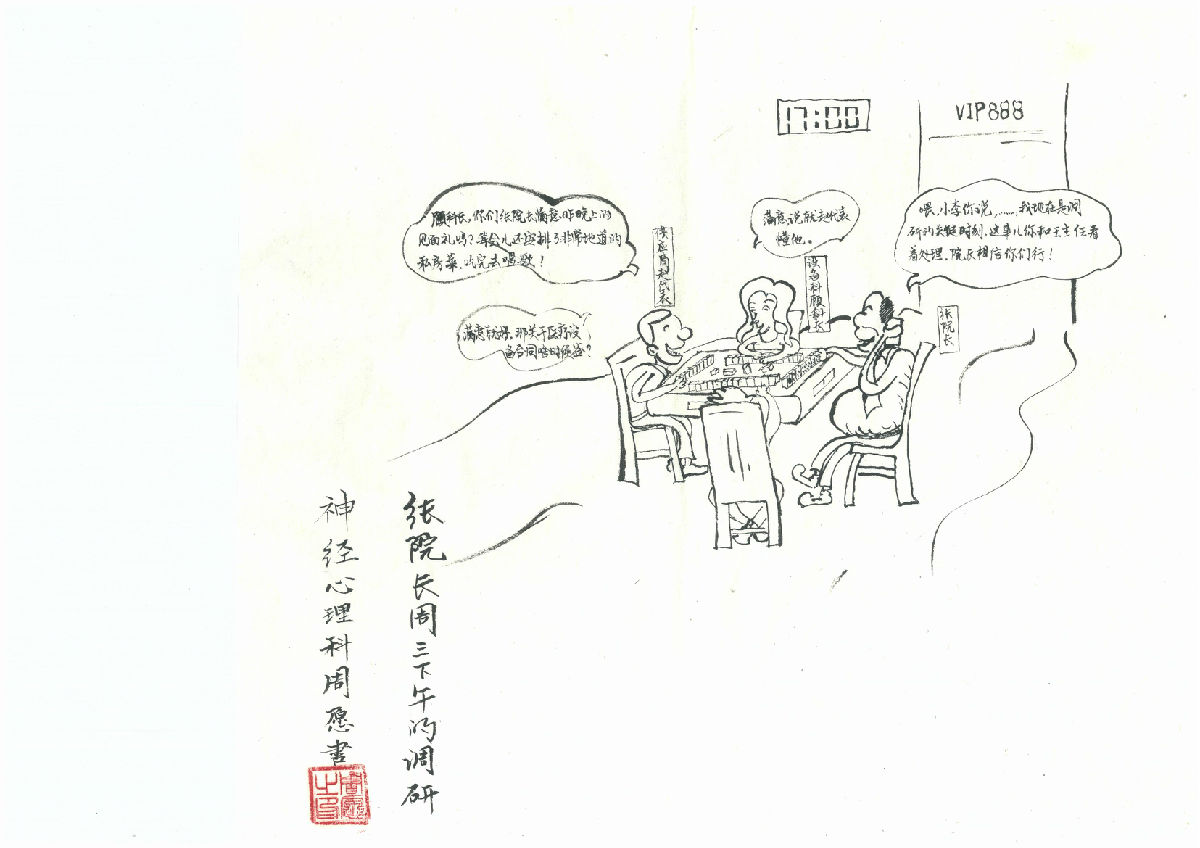 17:00
VIP888
顾科长,你们张院长满意昨晚上的
见面礼吗?等会儿还安排了非常地道的
私房菜,吃完去唱歌!
供应商赵代表
满意,说就赵代表
懂他。
设备科顾科长
喂,小李你说,……,我现在是调
研的关键时刻,这事儿你和王主任看
着处理,院长相信你们行!
张院长
满意就好,那关于医疗设
备合同啥时候签?
张院长周三下午的调研
神经心理科周愿书